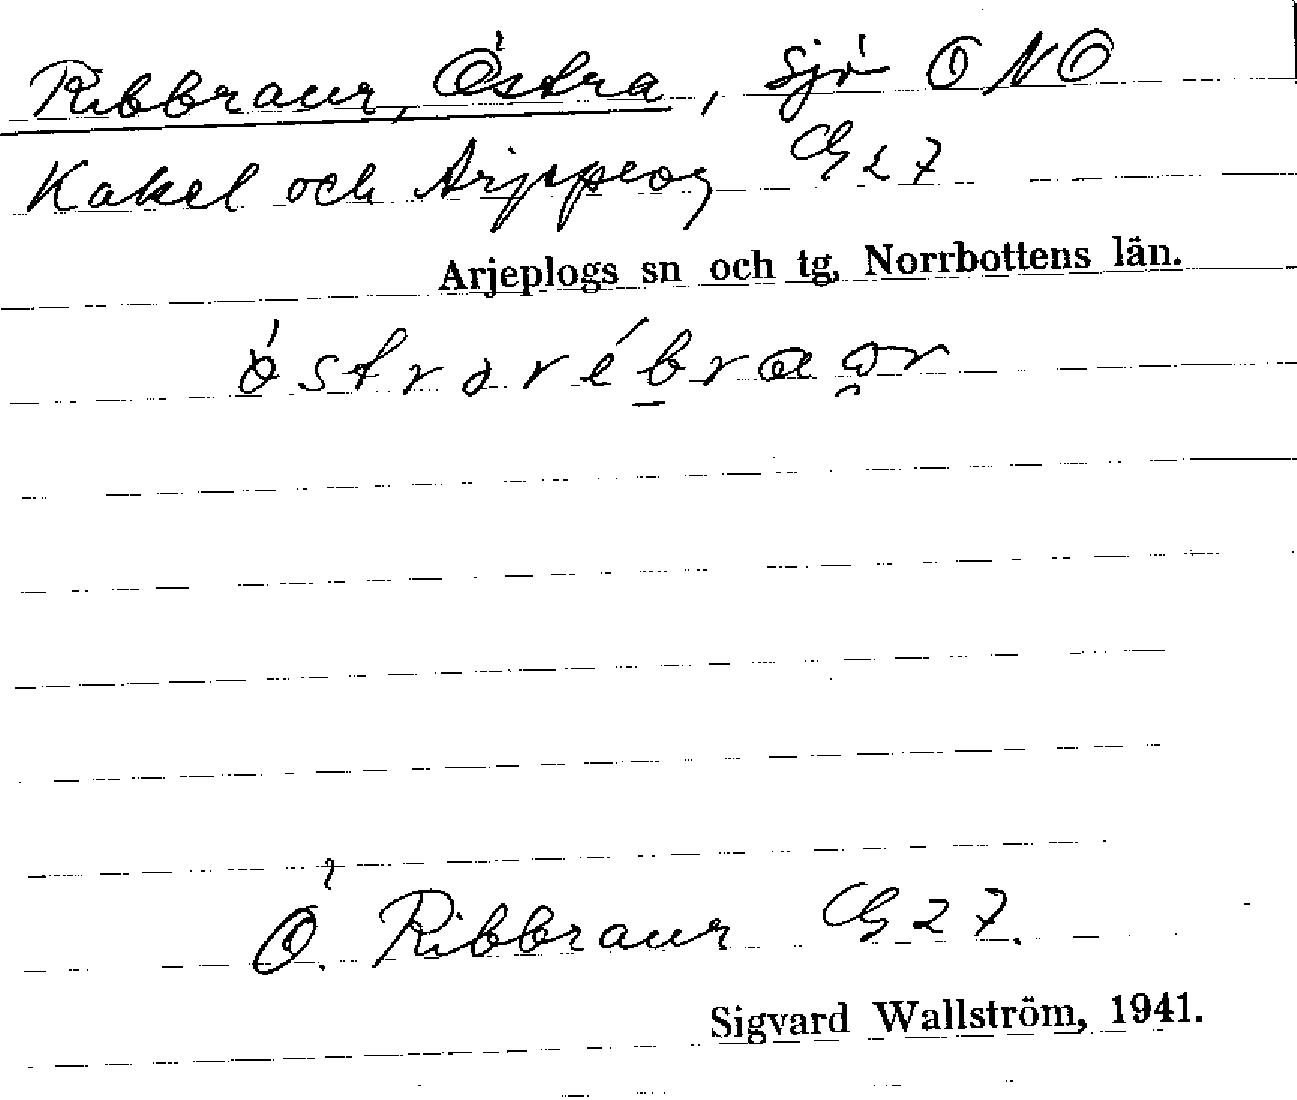 Ribbraur, Östra, sjö ONO
Kakel och Arjeplog G27
Arjeplogs sn och tg, Norrbottens län.
Ö. Ribbraur G27.
Sigvard Wallström, 1941.